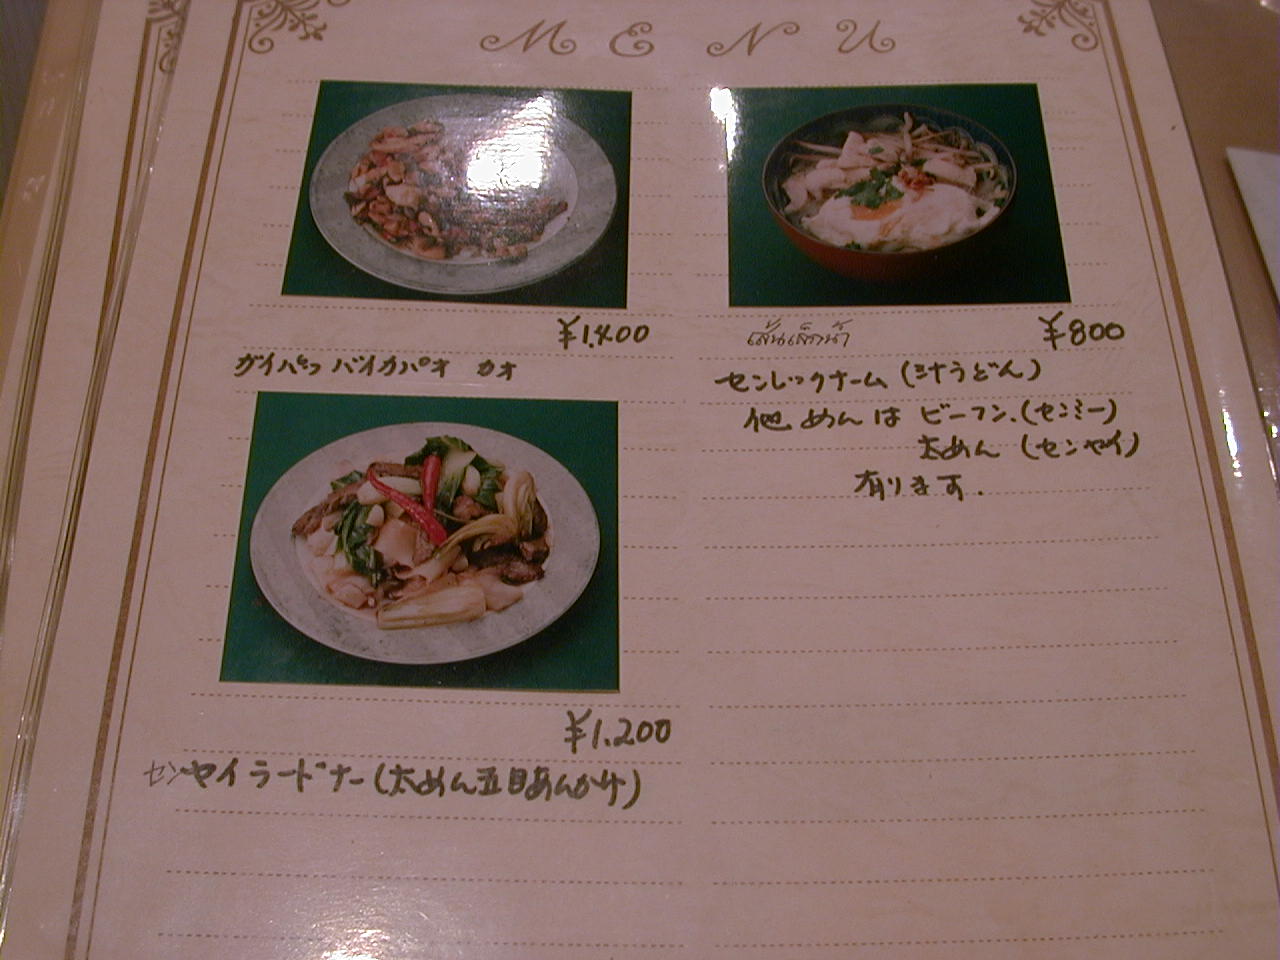 MENU
¥1,400
ガイパッ バイカパオ カオ
¥1.200
センヤイラードナー(太めん五目あんかけ)
เส้นเล็กน้ำ ¥800
センレックナーム(汁うどん)
他 めんは ビーフン.(センミー)
太めん (センヤイ)
有ります.